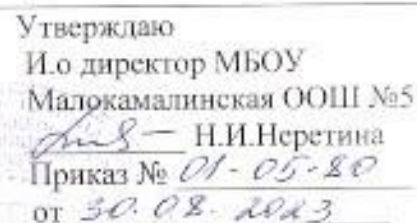 Утверждаю
И.о директор МБОУ
Малокамалинская ООШ №5
Н.И.Неретина
Приказ № 01-05-80
от 30.08.2023